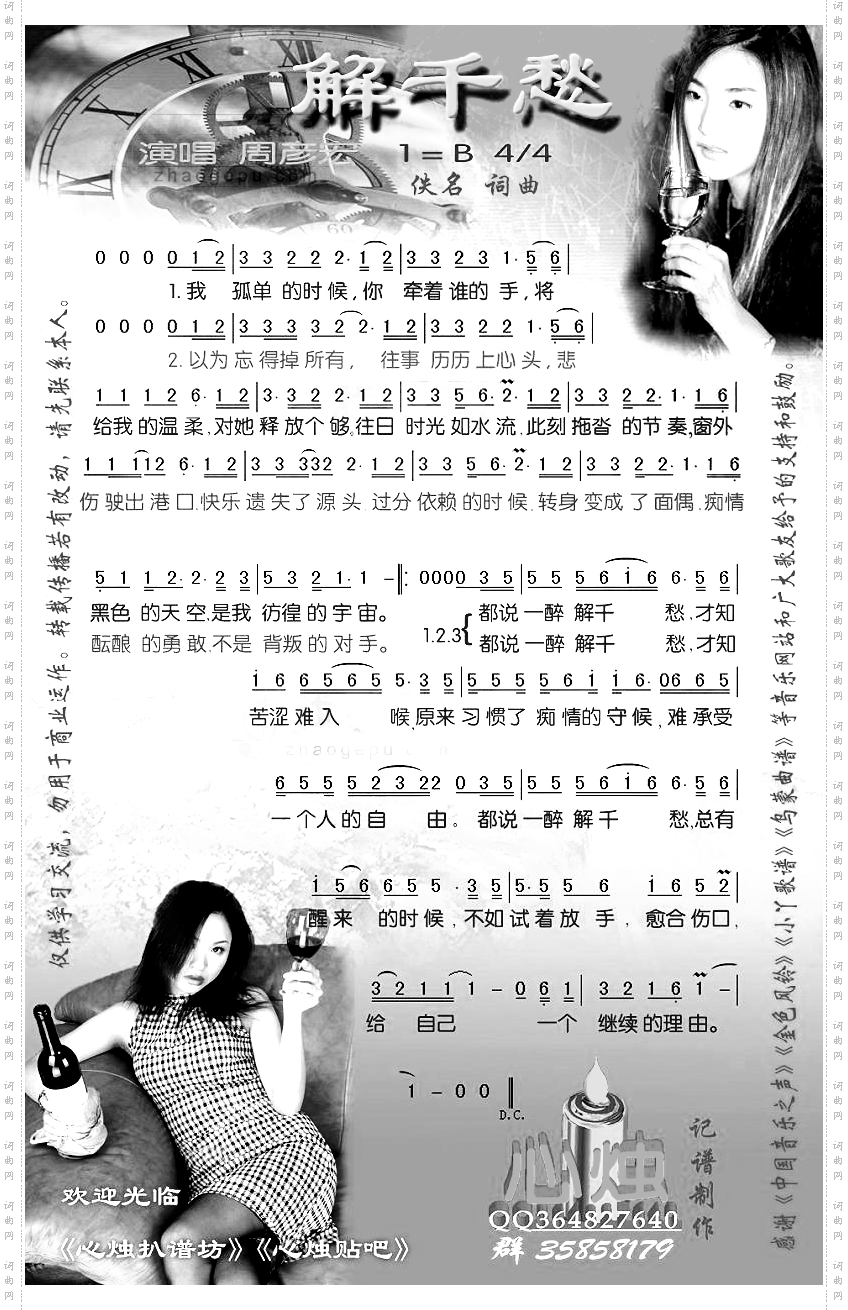 解千愁
演唱 周彦宏 1=B 4/4
zhaogepu.com
佚名 词曲
0 0 0 0 1 2 | 3 3 2 2 2· 1 2 | 3 3 2 3 1· 5 6 |
1.我 孤单 的时候,你 牵着谁的 手,将
0 0 0 0 1 2 | 3 3 3 3 2 2· 1 2 | 3 3 2 2 1· 5 6 |
2.以为 忘得掉所有, 往事 历历上心头,悲
1 1 1 2 6· 1 2 | 3· 3 2 2 2· 1 2 | 3 3 5 6· 2· 1 2 | 3 3 2 2· 1· 1 6 |
给我的温柔,对她释放个够,往日 时光如水流,此刻拖沓 的节奏,窗外
1 1 1 1 2 6· 1 2 | 3 3 3 3 3 2 2· 1 2 | 3 3 5 6· 2· 1 2 | 3 3 2 2· 1 6 |
伤驶出港口,快乐遗失了源头 过分依赖的时候,转身变成了面偶,痴情
5 1 1 2· 2· 2 3 | 5 3 2 1· 1 – :‖ 0 0 0 0 3 5 | 5 5 5 6 1 6 6· 5 6 |
黑色 的天空,是我 彷徨的宇宙。 都说一醉解千 愁,才知
酝酿 的勇敢,不是 背叛的对手。 1.2.3 { 都说一醉解千 愁,才知
1 6 6 5 6 5 5· 3 5 | 5 5 5 5 6 1 1· 0 6 6 5 |
苦涩难入 喉,原来习惯了 痴情的守候,难承受
zhaogepu.com
6 5 5 5 2 3 2 2 0 3 5 | 5 5 5 6 1 6 6· 5 6 |
一个人的自 由。都说一醉解千 愁,总有
1 5 6 6 5 5 · 3 5 | 5· 5 5 6 1 6 5 2 |
醒来 的时候,不如试着放手,愈合伤口,
3 2 1 1 1 – 0 6 1 | 3 2 1 6 1 – |
给 自己 一个 继续的理由。
1 – 0 0 ‖
D.C.
心烛
记谱制作
QQ364827640
群 35858179
欢迎光临
《心烛扒谱坊》《心烛贴吧》
仅供学习交流,勿用于商业运作。转载传播若有改动,请先联系本人。
感谢《中国音乐之声》《金色风铃》《小丫歌谱》《乌蒙曲谱》等音乐网站和广大歌友给予的支持和鼓励。
词曲网